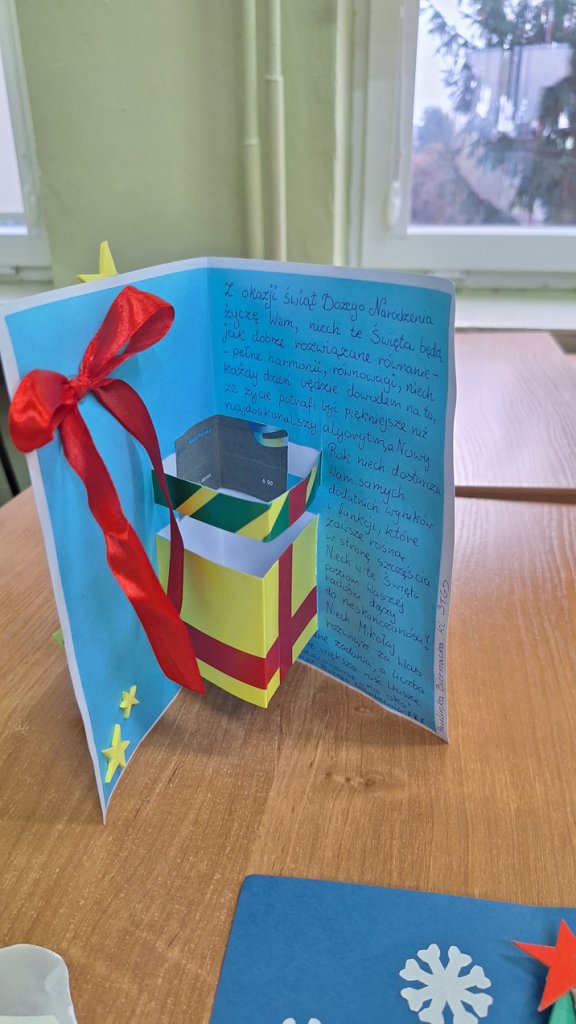 Z okazji świąt Bożego Narodzenia
życzę Wam, niech te Święta będą
jak dobrze rozwiązane równanie -
- pełne harmonii, równowagi, niech
każdy dzień będzie dowodem na to,
że życie potrafi być piękniejsze niż
najdoskonalszy algorytm, a Nowy
Rok niech dostarcza
Wam samych
dodatnich wyników
i funkcji, które
zawsze rosną
w stronę szczęścia
Niech w te Święta
poziom Waszej
radości dąży
do nieskończoności,
Niech Mikołaj Was
za
zadania, a liczba
większa niż Wasze
Paulinka Biernacka KL
6.00